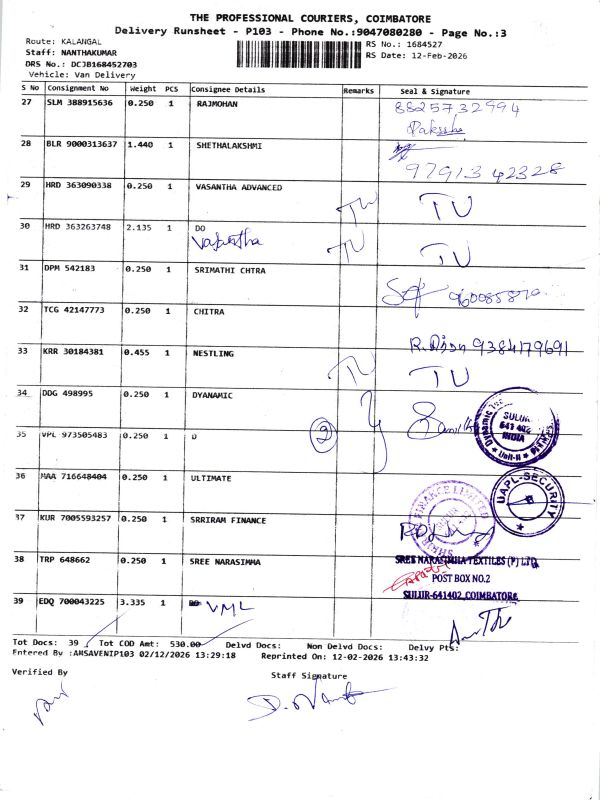 THE PROFESSIONAL COURIERS, COIMBATORE
Delivery Runsheet - P103 - Phone No.:9047080280 - Page No.:3
Route: KALANGAL
RS No.: 1684527
Staff: NANTHAKUMAR
RS Date: 12-Feb-2026
DRS No.: DCJB168452703
Vehicle: Van Delivery
S No Consignment No Weight PCS Consignee Details Remarks Seal & Signature
27 SLM 388915636 0.250 1 RAJMOHAN 8825732994
28 BLR 9000313637 1.440 1 SHETHALAKSHMI
97913 42328
29 HRD 363090338 0.250 1 VASANTHA ADVANCED TU TU
30 HRD 363263748 2.135 1 DO TU TU
Vasantha
31 DPM 542183 0.250 1 SRIMATHI CHTRA
32 TCG 42147773 0.250 1 CHITRA
R. 9384179691
33 KRR 30184381 0.455 1 NESTLING TU TU
34 DDG 498995 0.250 1 DYANAMIC
SULUR
641 402
INDIA
Unit-II
35 VPL 973505483 0.250 1 D 2
36 MAA 716648404 0.250 1 ULTIMATE
UAPL-SECURITY
37 KUR 7005593257 0.250 1 SRRIRAM FINANCE
FINANCE LIMITED
38 TRP 648662 0.250 1 SREE NARASIMMA
SREE NARASIMHA TEXTILES (P) LTD
POST BOX NO.2
SULUR-641402, COIMBATORE
39 EDQ 700043225 3.335 1 VML
Tot Docs: 39 Tot COD Amt: 530.00 Delvd Docs: Non Delvd Docs: Delvy Pts:
Entered By :AMSAVENIP103 02/12/2026 13:29:18 Reprinted On: 12-02-2026 13:43:32
Verified By
Staff Signature